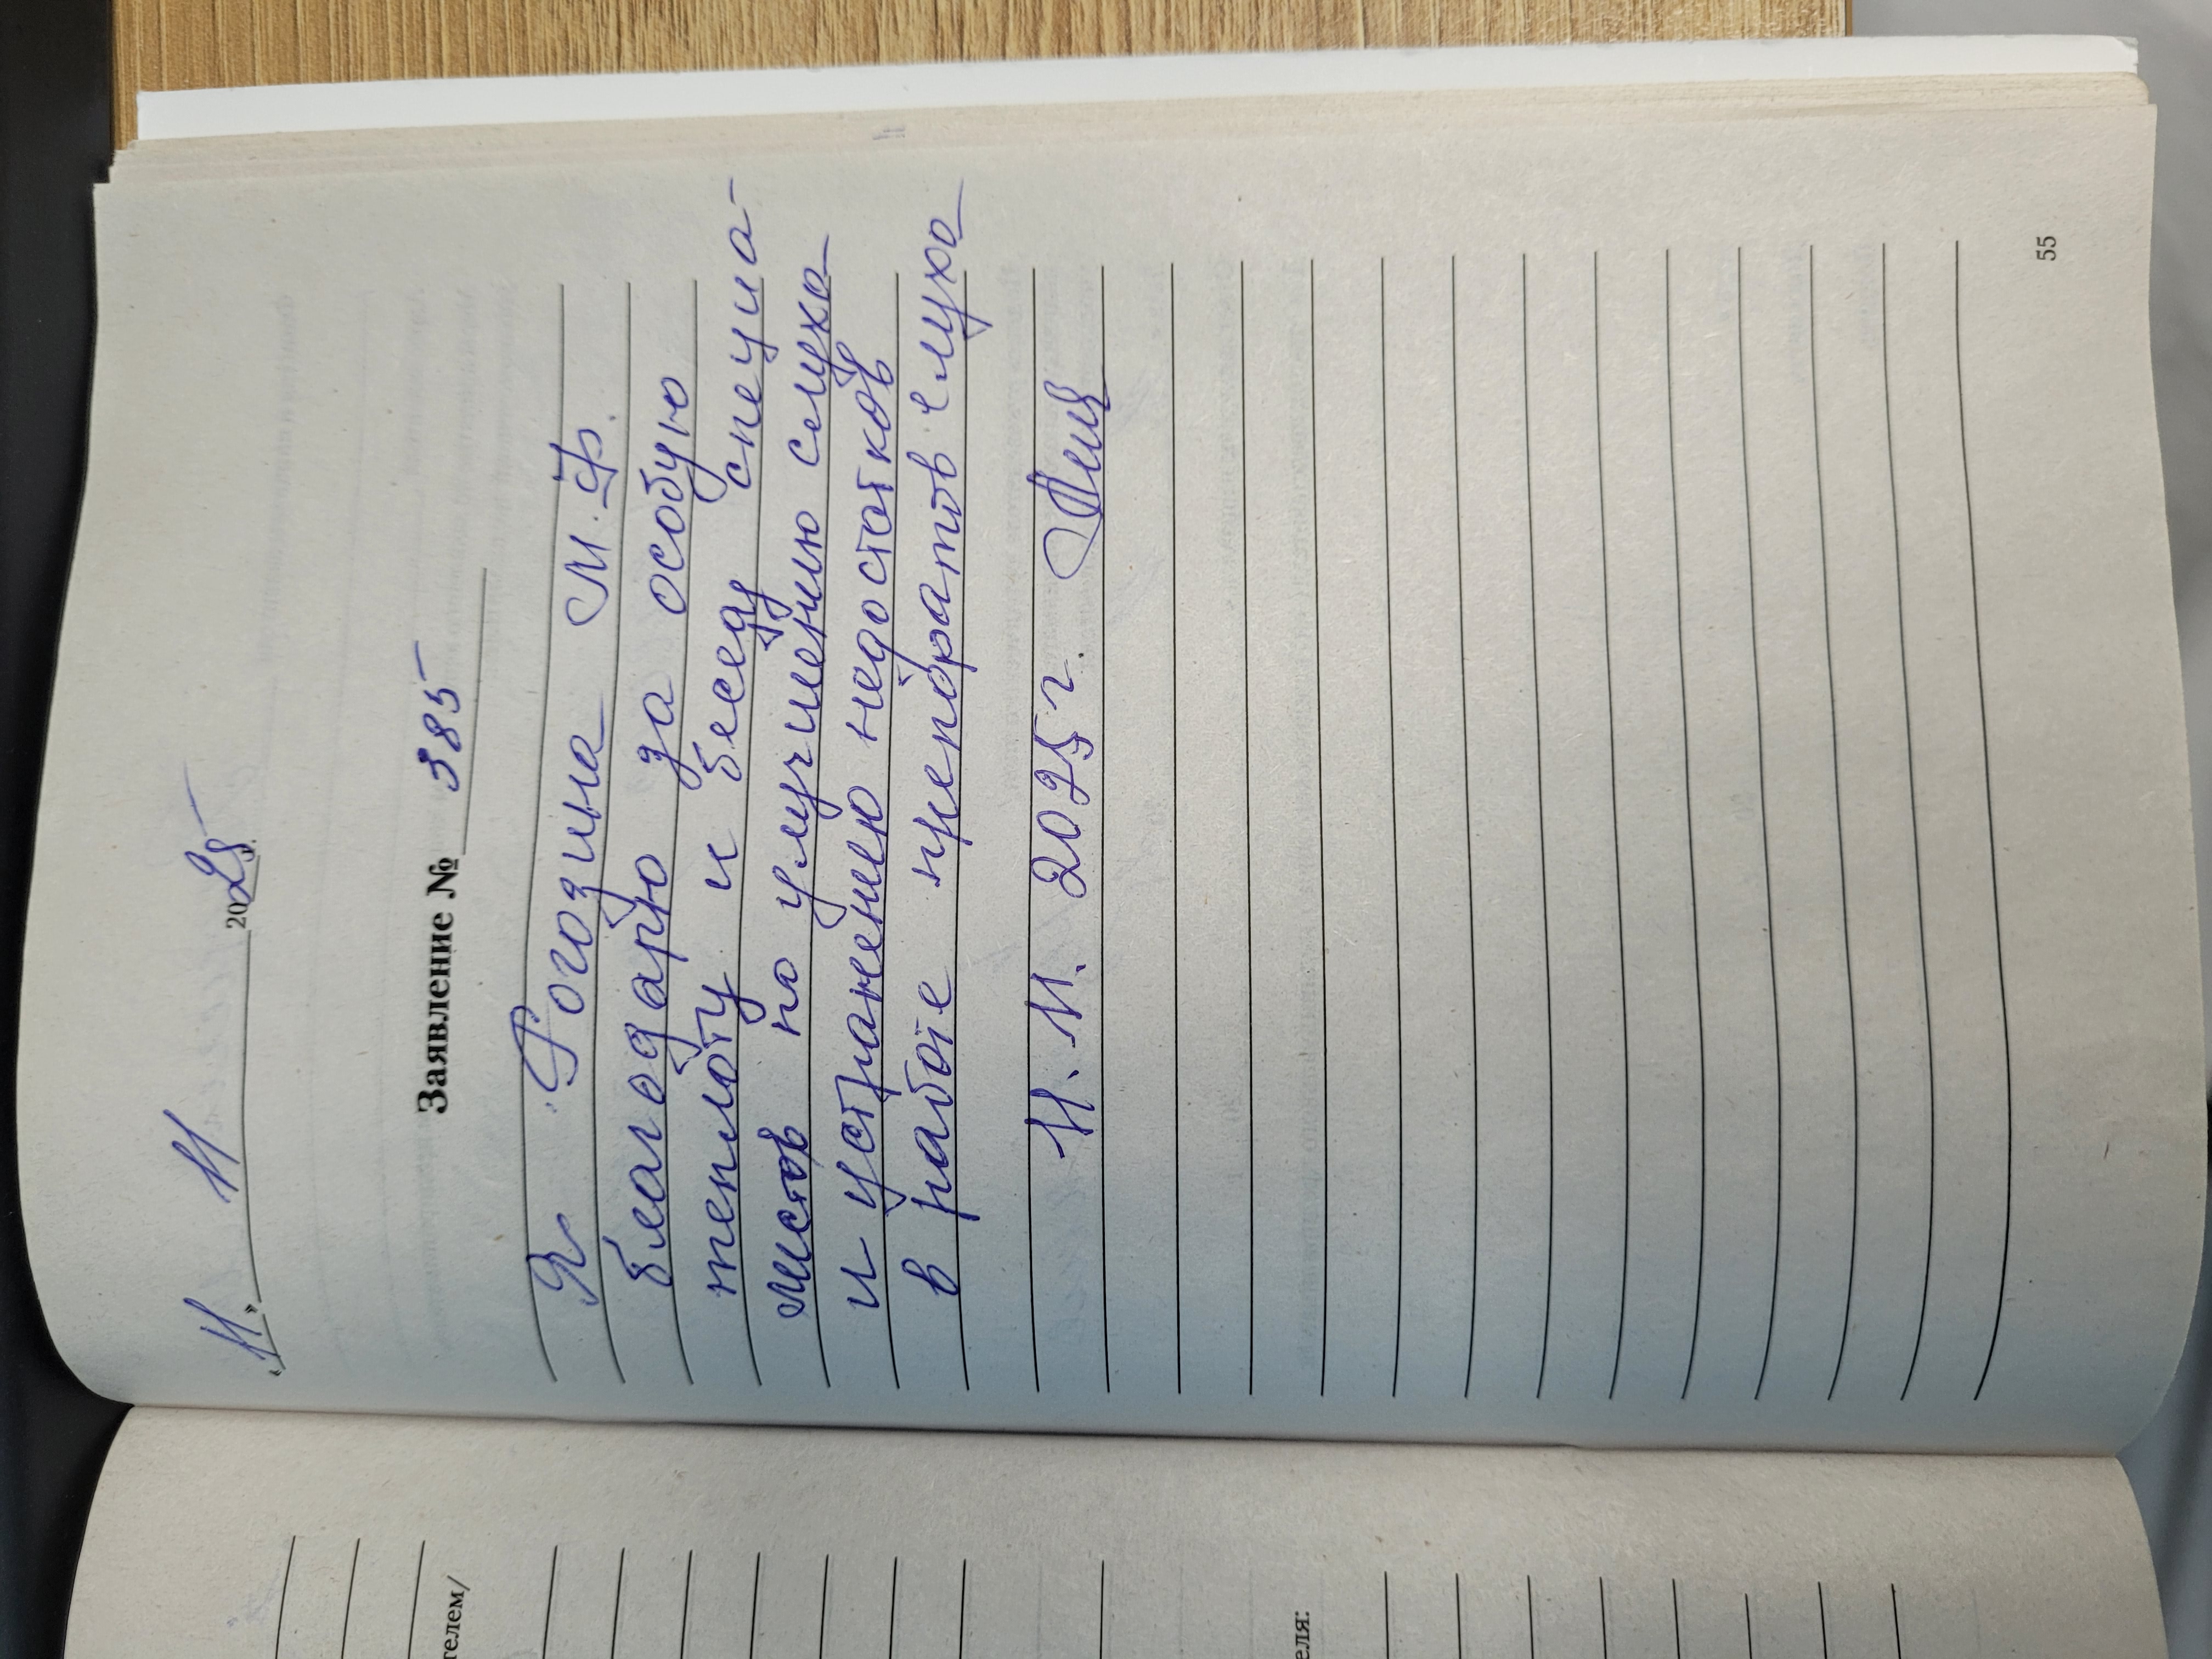 „11." 11 2025 г.
Заявление № 385
Я Рогозина М.Ф.
благодарю за особую
теплоту и беседу специа-
листов по улучшению слуха
и устранению недостатков
в работе препаратов слуха
11. 11. 2025 г.
55
телем/
еля: